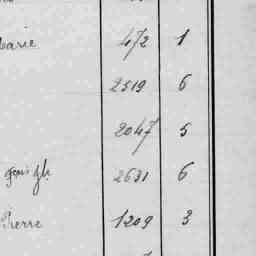 Marie 472 1
2519 6
2047 5
2631 6
Pierre 1209 3